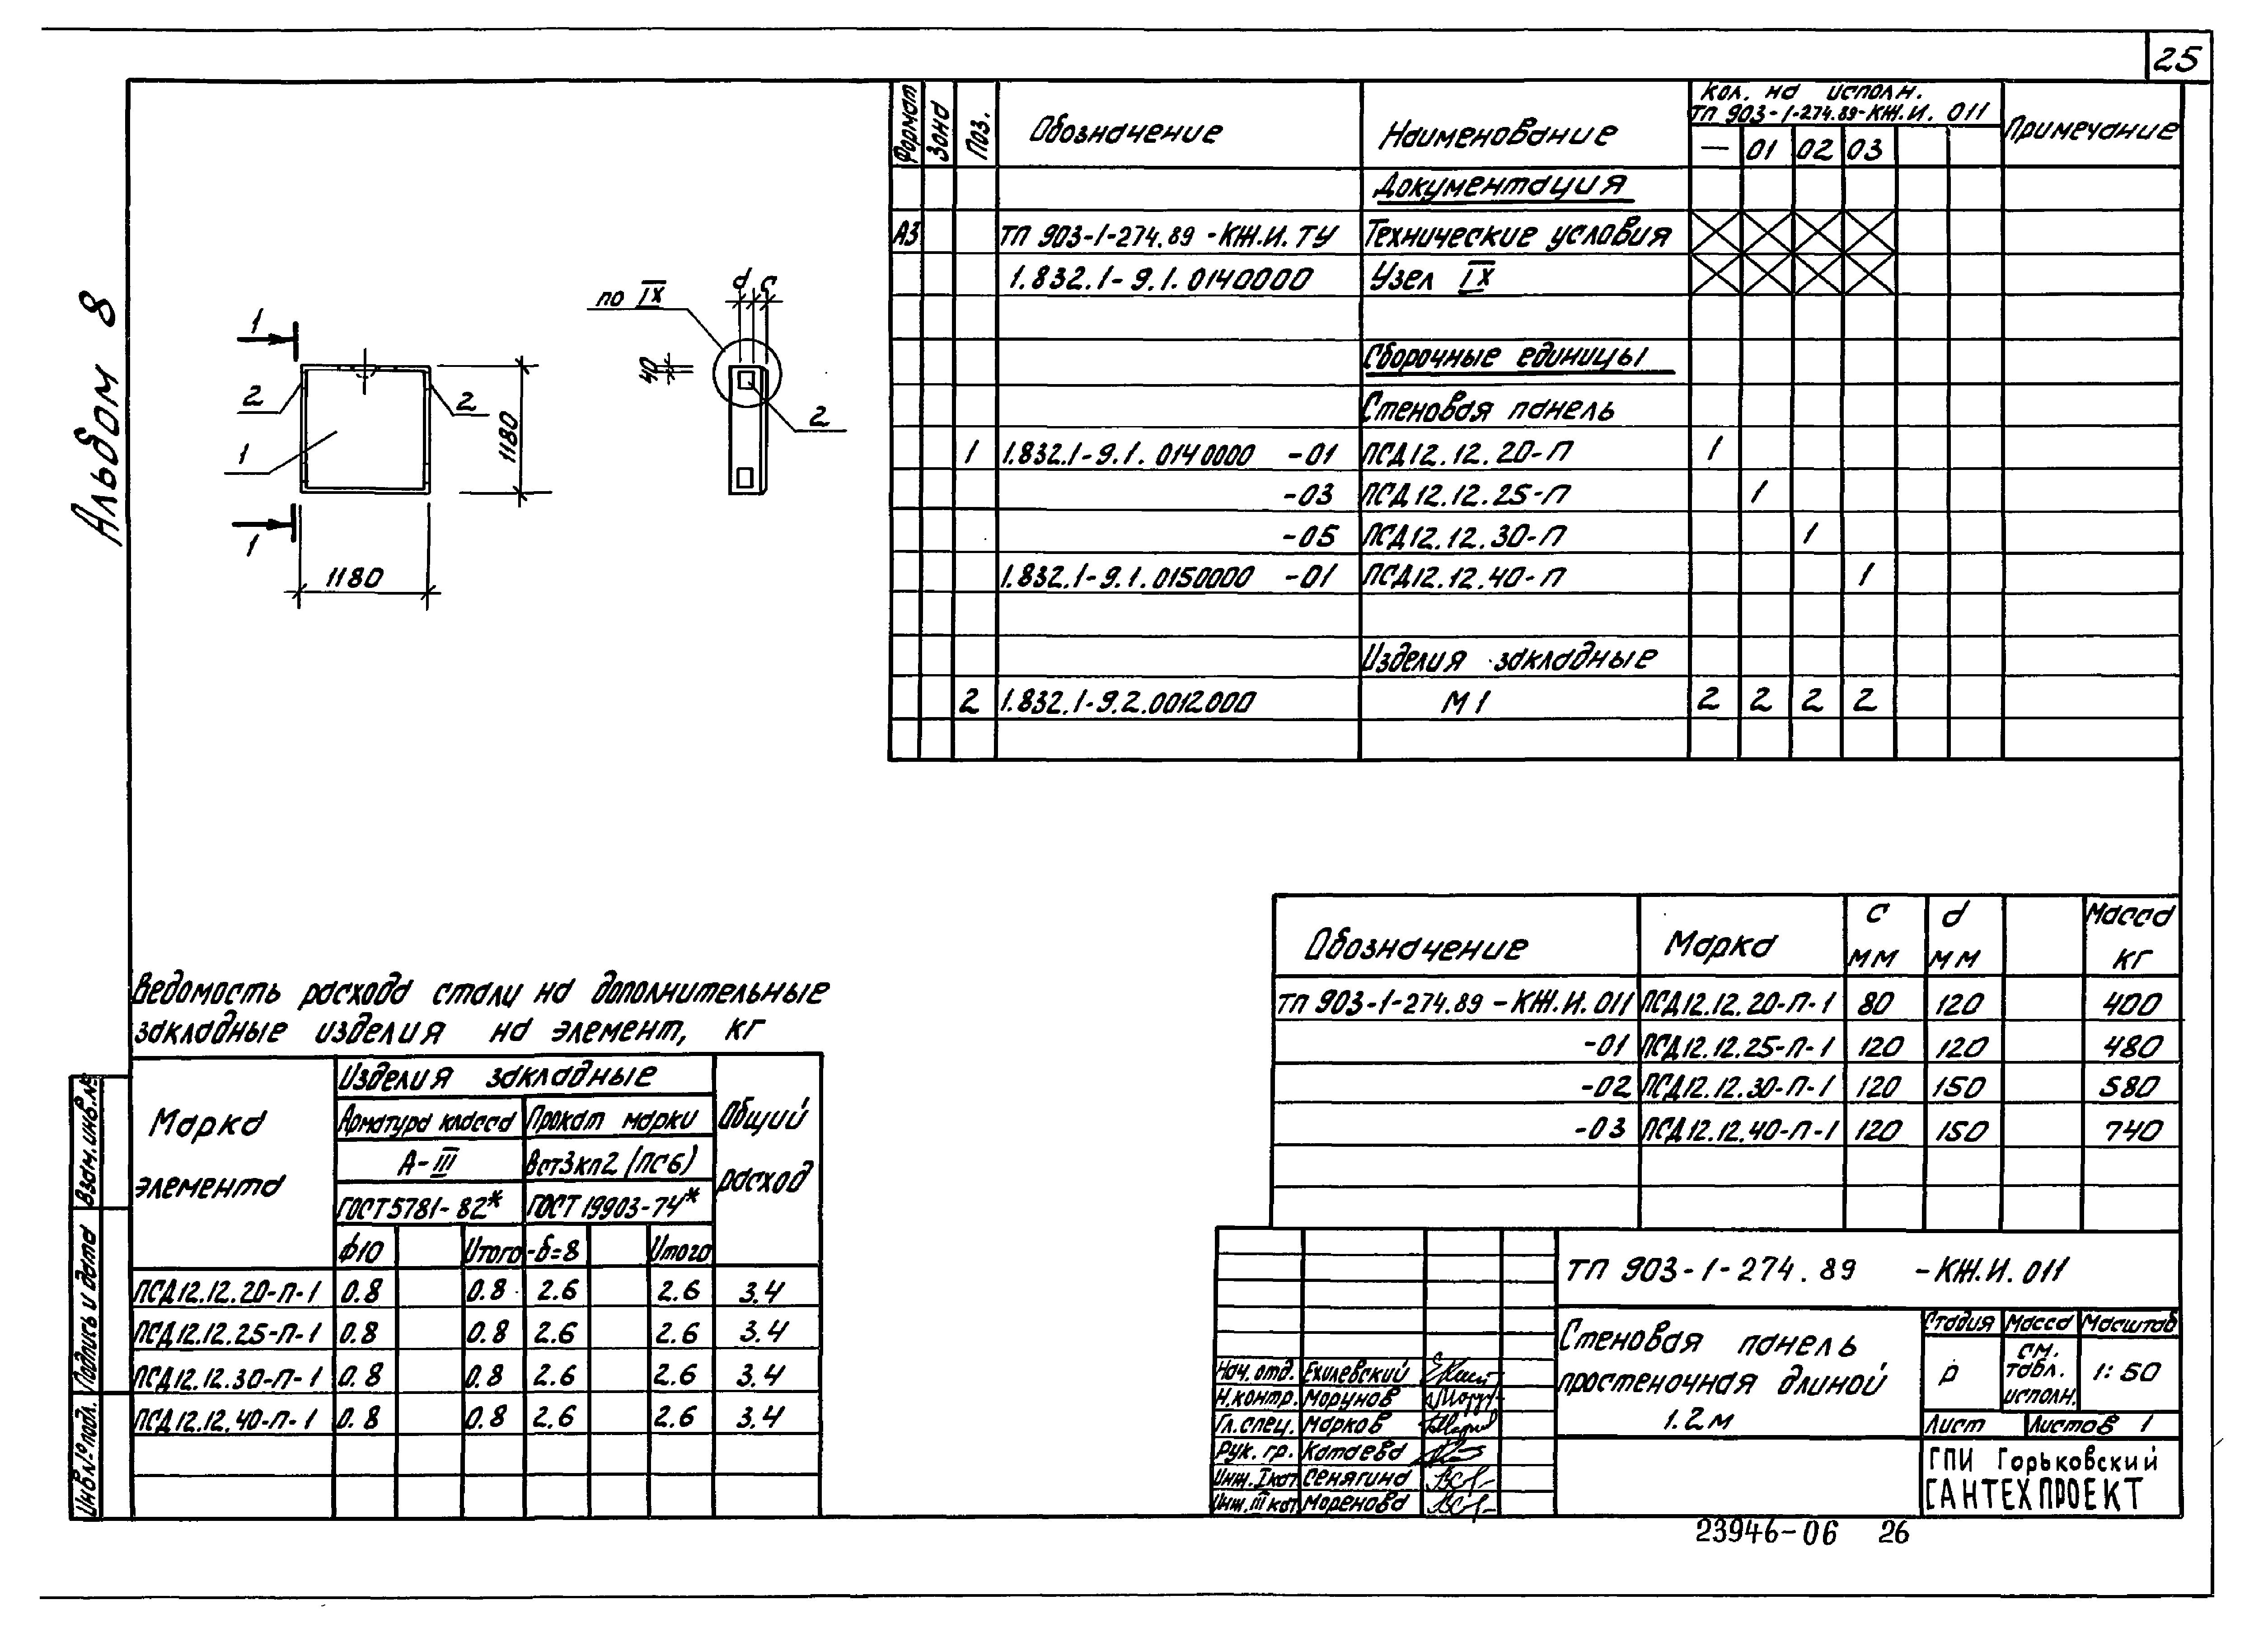 25
Альбом 8
Формат Зона Поз. Обозначение Наименование Кол. на исполн. ТП 903-1-274.89-КЖ.И. 011 Примечание
— 01 02 03
Документация
А3 ТП 903-1-274.89-КЖ.И.ТУ Технические условия
1.832.1-9.1.0140000 Узел IX
Сборочные единицы
Стеновая панель
1 1.832.1-9.1.0140000 -01 ПСД12.12.20-П 1
-03 ПСД12.12.25-П 1
-05 ПСД12.12.30-П 1
1.832.1-9.1.0150000 -01 ПСД12.12.40-П 1
Изделия закладные
2 1.832.1-9.2.0012000 М1 2 2 2 2
1
2
2
1
1
1180
1180
по IX
d c
40
2
Обозначение Марка c мм d мм Масса кг
ТП 903-1-274.89-КЖ.И.011 ПСД12.12.20-П-1 80 120 400
-01 ПСД12.12.25-П-1 120 120 480
-02 ПСД12.12.30-П-1 120 150 580
-03 ПСД12.12.40-П-1 120 150 740
Ведомость расхода стали на дополнительные
закладные изделия на элемент, кг
Марка элемента Изделия закладные Общий расход
Арматура класса Прокат марки
А-III Вст3кп2 (ПС6)
ГОСТ 5781-82* ГОСТ 19903-74*
ф10 Итого -δ=8 Итого
ПСД12.12.20-П-1 0.8 0.8 2.6 2.6 3.4
ПСД12.12.25-П-1 0.8 0.8 2.6 2.6 3.4
ПСД12.12.30-П-1 0.8 0.8 2.6 2.6 3.4
ПСД12.12.40-П-1 0.8 0.8 2.6 2.6 3.4
Взам.инв.№
Подпись и дата
Инв.№ подл.
ТП 903-1-274.89 -КЖ.И.011
Стеновая панель
простеночная длиной
1.2м
Стадия Масса Масштаб
Р см. табл. исполн. 1:50
Лист Листов 1
ГПИ Горьковский
САНТЕХПРОЕКТ
Нач.отд. Ехилевский
Н.контр. Морунов
Гл.спец. Марков
Рук. гр. Катаева
Инж.I кат Сенягина
Инж.III кат Моренова
23946-06 26